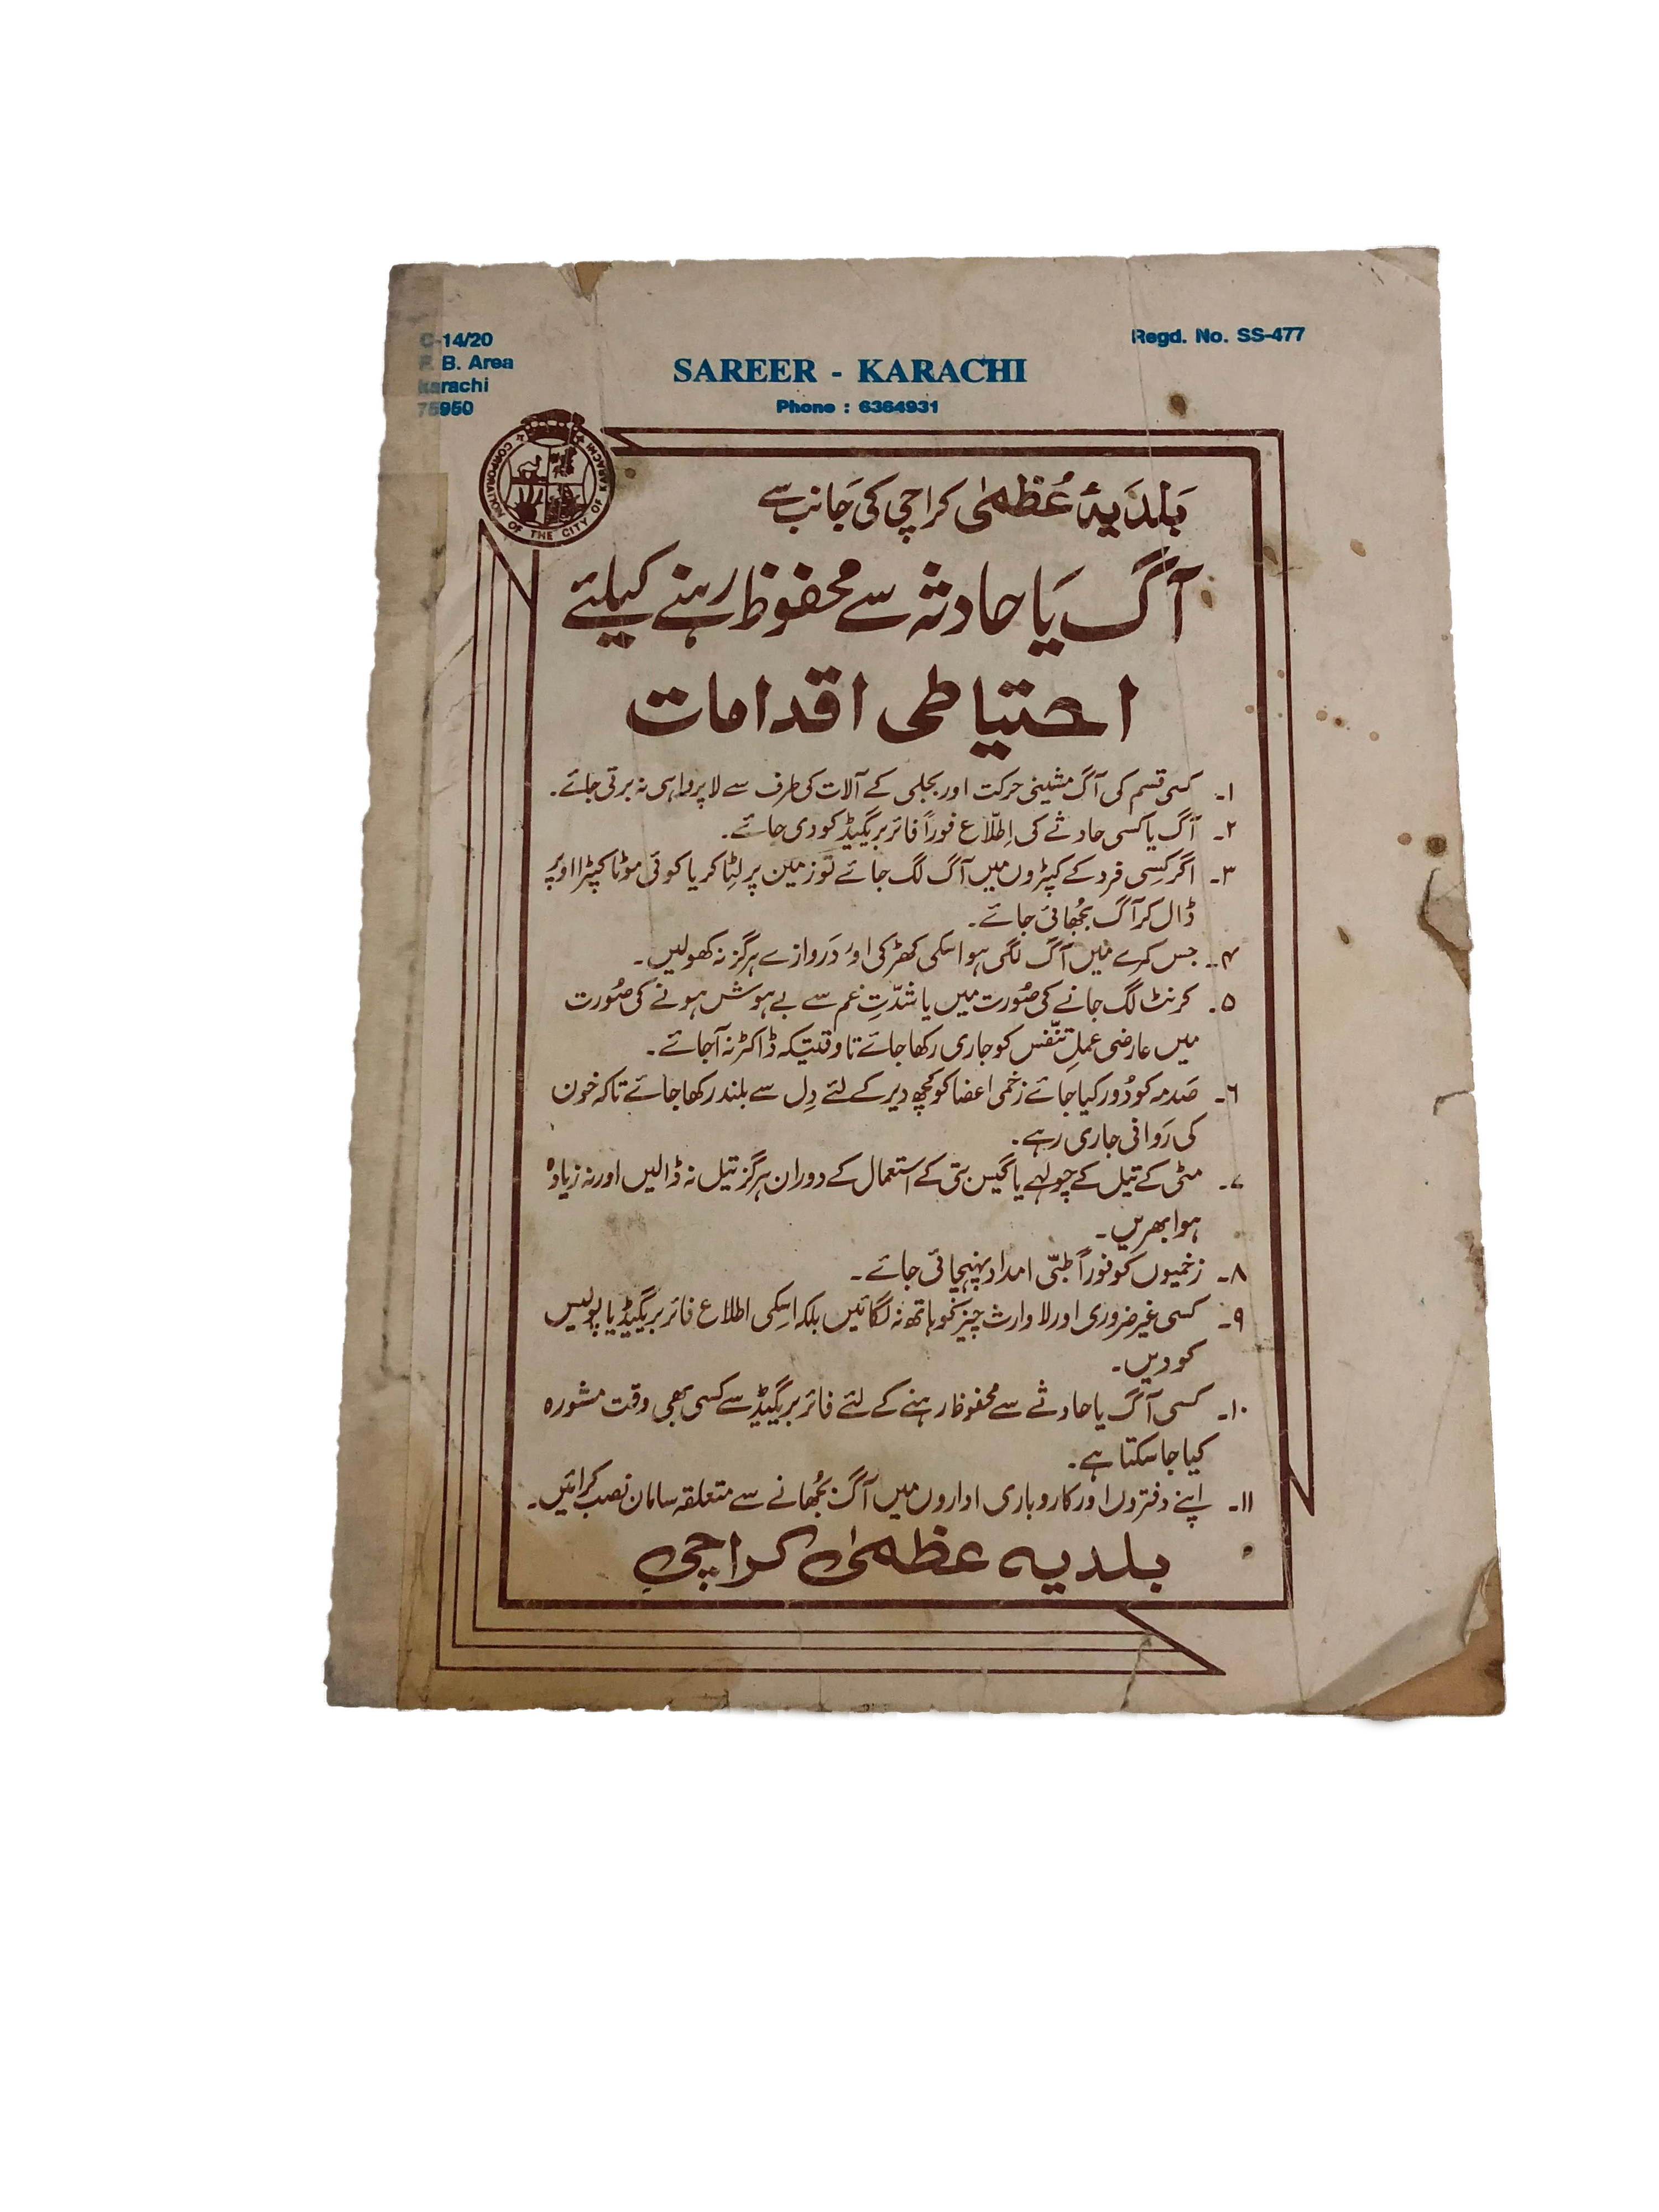 C-14/20
F. B. Area
Karachi
75950
Regd. No. SS-477
SAREER - KARACHI
Phone : 6364931
KARACHI CORPORATION OF THE CITY OF
بَلدَیۂ عُظمیٰ کراچی کی جَانب سے
آگ یَا حادثہ سے محفوظ رہنے کیلئے
احتیاطی اقدامات
۱۔ کسی قسم کی آگ مشینی حرکت اور بجلی کے آلات کی طرف سے لاپرواہی نہ برتی جائے۔
۲۔ آگ یا کسی حادثے کی اِطلّاع فوراً فائر بریگیڈ کو دی جائے۔
۳۔ اگر کِسی فرد کے کپڑوں میں آگ لگ جائے تو زمین پر لِٹا کر یا کوئی موٹا کپڑا اوپر
ڈال کر آگ بُجھائی جائے۔
۴۔ جس کمرے میں آگ لگی ہو اسکی کھڑکی اور دَروازے ہرگز نہ کھولیں۔
۵۔ کرنٹ لگ جانے کی صُورت میں یا شدّتِ غم سے بے ہوش ہونے کی صُورت
میں عارضی عملِ تنّفس کو جاری رکھا جائے تاوقتیکہ ڈاکٹر نہ آجائے۔
۶۔ صَدمہ کو دُور کیا جائے زخمی اعضا کو کچھ دیر کے لئے دِل سے بلند رکھا جائے تاکہ خون
کی رَوانی جاری رہے۔
۷۔ مٹی کے تیل کے چولہے یا گیس بتی کے استعمال کے دوران ہرگز تیل نہ ڈالیں اور نہ زیادہ
ہوا بھریں۔
۸۔ زخمیوں کو فوراً طبّی امداد پہنچائی جائے۔
۹۔ کسی غیر ضروری اور لاوارث چیز کو ہاتھ نہ لگائیں بلکہ اسکی اطلاع فائر بریگیڈ یا پولیس
کو دیں۔
۱۰۔ کسی آگ یا حادثے سے محفوظ رہنے کے لئے فائر بریگیڈ سے کسی بھی وقت مشورہ
کیا جاسکتا ہے۔
۱۱۔ اپنے دفتروں اور کاروباری اداروں میں آگ بُجھانے سے متعلقہ سامان نصب کرائیں۔
بلدیہ عظمیٰ کراچی